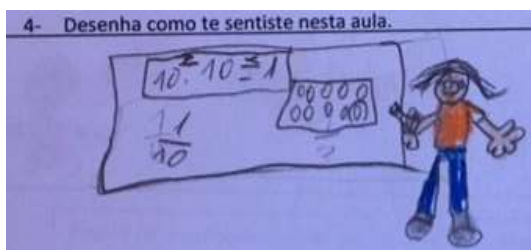 4- Desenha como te sentiste nesta aula.
10² : 10³ = 1
00000
00000
1
10